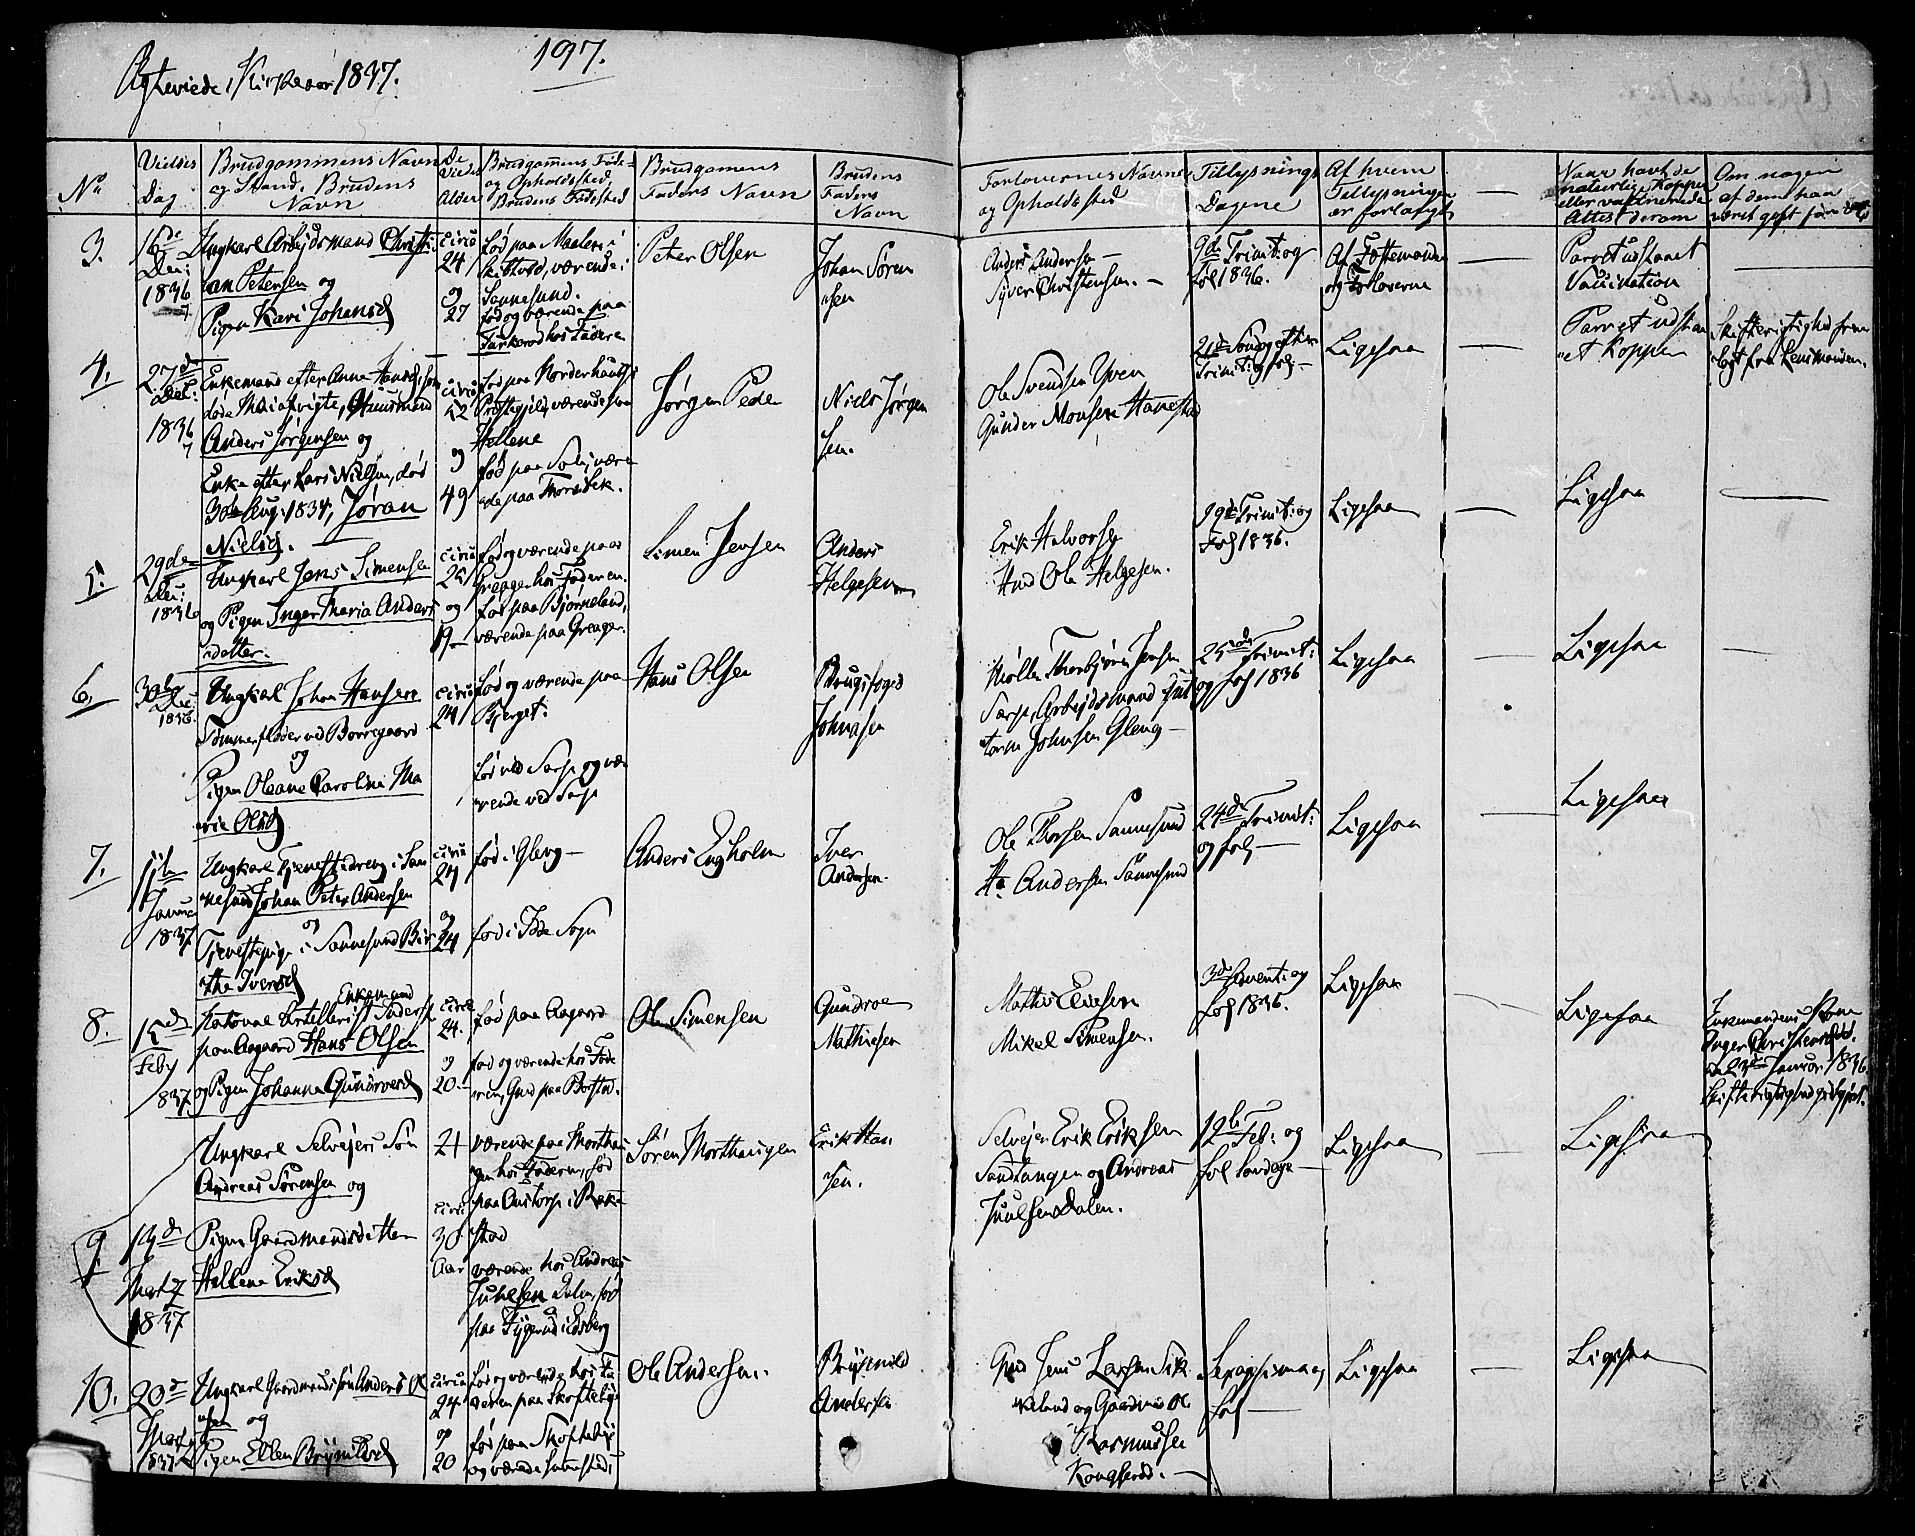 Ægteviede i Kirkeaar 1837.
197.
No
Vielses Dag
Brudgommens Navn og Stand. Brudens Navn
De Viedes Alder
Brudgommens Føde- og Opholdssted Brudens Fødested
Brudgomens Faders Navn
Brudens Faders Navn
Forlovernes Navne og Opholdssted
Tillysnings Dagene
Af hvem Tillysningen er forlangt
Naar havt de naturlige Kopper eller vaccinerede Attest derom
Om nogen af dem har været gift før
3.
16de Dec: 1836
Ungkarl Arbejdsmand Christi-
an Petersen og
Pigen Kari Johansd
circa 24 og 27
Sannesund.
fød og værende paa
hos Fadere
Peter Olsen
Johan Søren
sen
Anders Andersen
Syver Christensen.
9de Trinit: og
fol 1836.
Af
og Forloverne
Parret udstaaet
Vaccination
4.
27de Dec: 1836
Enkemand efter Anne Hansd, som
døde
Anders Jørgensen og
Enke efter Lars Nielsen, død
30te Aug: 1834, Jøran
Nielsd.
circa 52 og 49
fød paa Norderhaugs
Præstegjeld værende paa
Hellene
fød paa
ende paa
Jørgen Peder
Niels Jørgen
sen.
Ole Svendsen Yven
Gunder Monsen Hanestad
21de Søndag efter
Trinit: og fol:
Ligesaa
Parret udstaa
et Kopper
Skifterigtighed frem
lagt fra Lensmanden.
5.
29de Dec: 1836
Ungkarl Jens Simensen
og Pigen Inger Maria Anders
datter.
circa 25 og 19
fød og værende paa
Greager hos Faderen.
fød paa Bjørneland,
værende paa Greager.
Simen Jensen
Anders
Helgesen
Erik Halvorsen
Ole Helgesen.
19de Trinit: og
Fol 1836.
Ligesaa
Ligesaa
6.
30te Dec: 1836
Ungkarl Johan Hansen
Tømmerfløder ved Borregaard
og
Pigen Oleane Carolina Ma
rie Olsd
circa 24
fød og værende paa
Bjerget.
fød ved Sarp og væ
rende ved Sarp
Hans Olsen
Brugsfoged
Johnsen
Møller Thorbjørn Jensen
Sarp, Arbejdsmand Gut
torm Johnsen Gleng
25de Trinit:
og fol 1836
Ligesaa
Ligesaa
7.
Januar 1837
Ungkarl Tjenestedreng i San
nesund Johan Peter Andersen
og
Tjenestepige i Sannesund Bir
the Iversd
circa 24 og 24
fød i Gleng
fød i Idde Sogn
Anders Engholm
Iver
Andersen.
Ole Thorsen Sannesund
Hs Andersen Sannesund
24de Trinit:
og fol
Ligesaa
Ligesaa
8.
15de Feby 1837
Enkemand
National Artillerist Anders
paa Aagaard Hans Olsen
og Pigen Johanna Gundersd
circa 24. og 20.
fød paa Aagaard
fød og værende hos Fade
ren, Gaard paa Borstad.
Ole Simensen
Gundroe
Mathiesen
Mathis Evensen
Mikel Simensen.
3de Advent: og
fol 1836.
Ligesaa
Ligesaa
Enkemandens Kone
Inger Christensd død.
den 23de Januar 1836.
Skifterigtighed
9.
19de Marty 1837
Ungkarl Selvejers Søn
Andreas Sørensen og
Pigen Gaardmandsdatter
Hellene Eriksd
21 circa 30 Aar
værende paa Morthau
gen hos Faderen, fød
paa Aastorp i Rakke
stad
værende hos Andreas
Juhlsen Dalen, fød
paa i Edsberg
Søren Morthaugen
Erik Han
sen.
Selvejer Erik Eriksen
Sandtangen og Andreas
Juulsen Dalen.
12te Feb: og
fol Søndage
Ligesaa
Ligesaa
10.
20de Marty 1837
Ungkarl Gaardmandssøn Anders Ol
sen og
Pigen Ellen Brynildsd
circa 24. og 20
fød og værende hos Fa
deren paa
fød paa
og værende sammesteds
Ole Andersen.
Brynild
Andersen
Gmd Jens Larsen Sik
keland og Gaardmd Ole
Rasmussen
Kongsrød.
Sexagesima og
fol
Ligesaa
Ligesaa